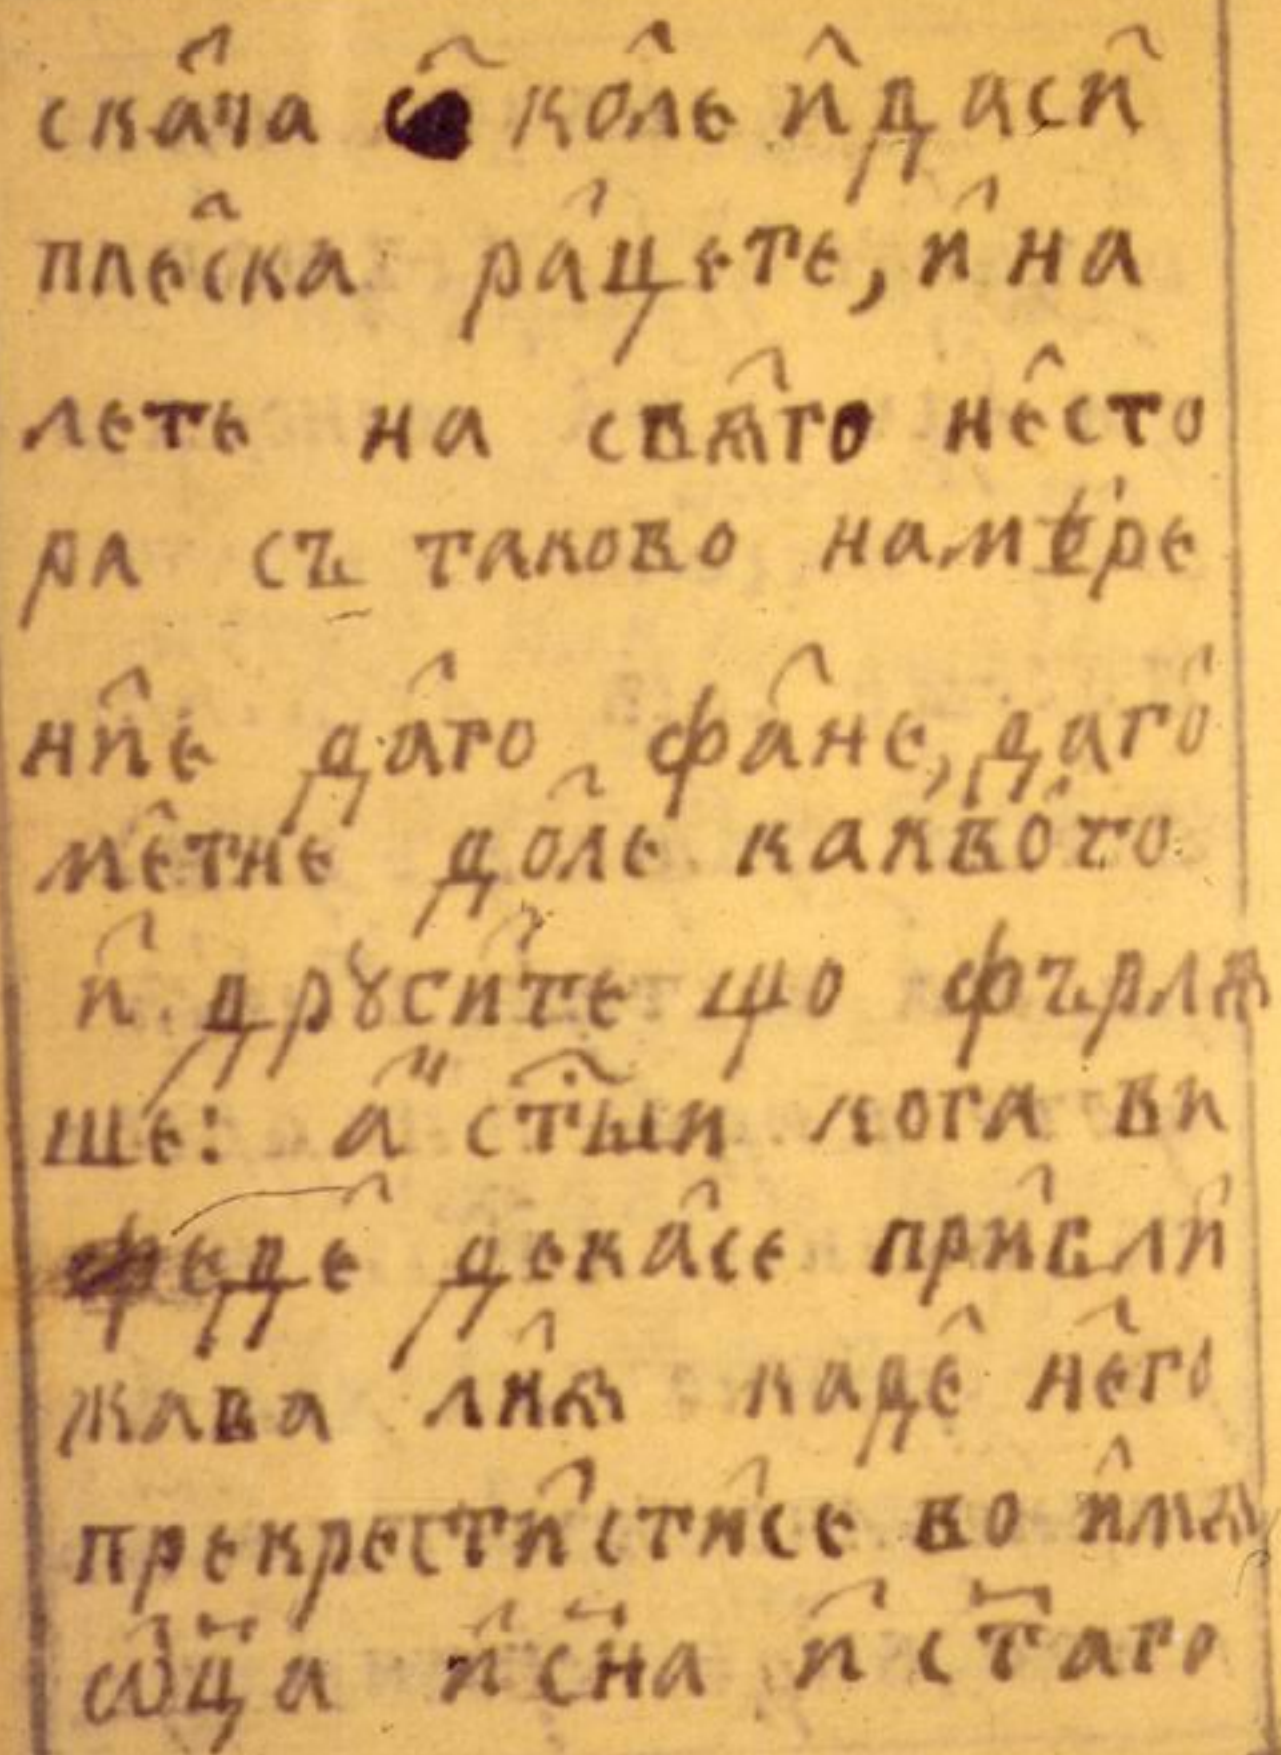 ска̑ча ѡ҆коле и҆ даси҆
пле̑ска ра̑цете, и҆ на
лете на свѧ̑го не̑сто
ра съ таково намѣ́ре
ни̑е да̑го фа̑не, даго̑
ме̑тне до̑ле какво̑то
и҆ дрꙋси̑те що фърлѧ
ше: а҆ ст҃ы̑и кога ви
деде̑ дека̑се прибли̑
жава ли̑ѧ каде̑ не̑го
прекрести̑ сти̑се во и҆мѧ
ѡ҆ц҃а и҆ сн҃а и҆ ст҃аго